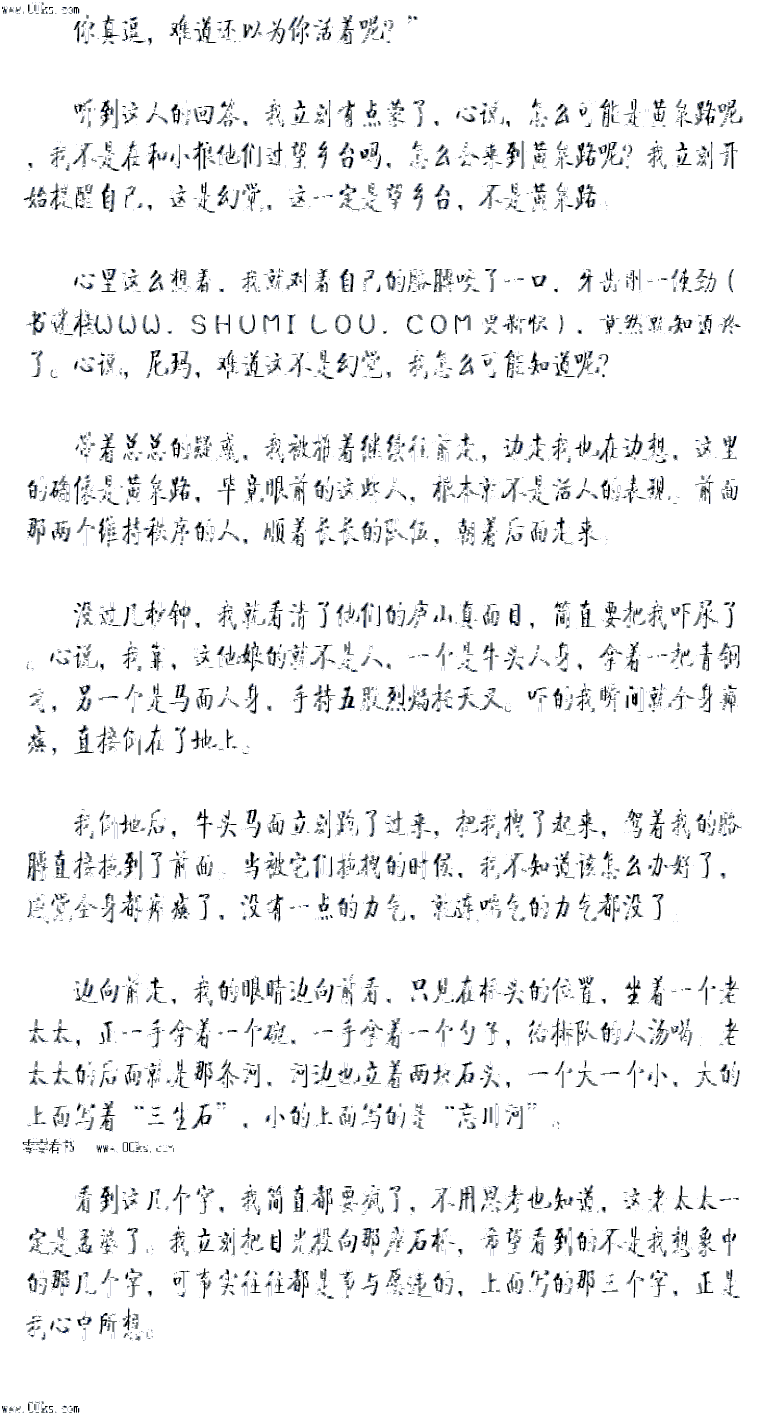 www.00ks.com
你真逗，难道还以为你活着呢？”
听到这人的回答，我立刻有点蒙了，心说，怎么可能是黄泉路呢
，我不是在和小狼他们过望乡台吗，怎么会来到黄泉路呢？我立刻开
始提醒自己，这是幻觉，这一定是望乡台，不是黄泉路。
心里这么想着，我就对着自己的胳膊咬了一口，牙齿刚一使劲（
书迷楼WWW．SHUMILOU．COM更新快），竟然就知道疼
了。心说，尼玛，难道这不是幻觉，我怎么可能知道呢？
带着总总的疑惑，我被推着继续往前走，边走我也在边想，这里
的确像是黄泉路，毕竟眼前的这些人，根本就不是活人的表现。前面
那两个维持秩序的人，顺着长长的队伍，朝着后面走来。
没过几秒钟，我就看清了他们的庐山真面目，简直要把我吓尿了
。心说，我靠，这他娘的就不是人，一个是牛头人身，拿着一把青钢
，另一个是马面人身，手持五股烈焰托天叉。吓的我瞬间就全身瘫
痪，直接倒在了地上。
我倒地后，牛头马面立刻跑了过来，把我搀了起来，驾着我的胳
膊直接拖到了前面。当被它们拖拽的时候，我不知道该怎么办好了，
感觉全身都瘫痪了，没有一点的力气，就连喘气的力气都没了。
边向前走，我的眼睛边向前看，只见在桥头的位置，坐着一个老
太太，正一手拿着一个碗，一手拿着一个勺子，给排队的人汤喝。老
太太的后面就是那条河，河边也立着两块石头，一个大一个小，大的
上面写着“三生石”，小的上面写的是“忘川河”。
零零看书 www.00ks.com
看到这几个字，我简直都要疯了，不用思考也知道，这老太太一
定是孟婆了。我立刻把目光投向那座石桥，希望看到的不是我想象中
的那几个字，可事实往往都是事与愿违的，上面写的那三个字，正是
我心中所想。
www.00ks.com